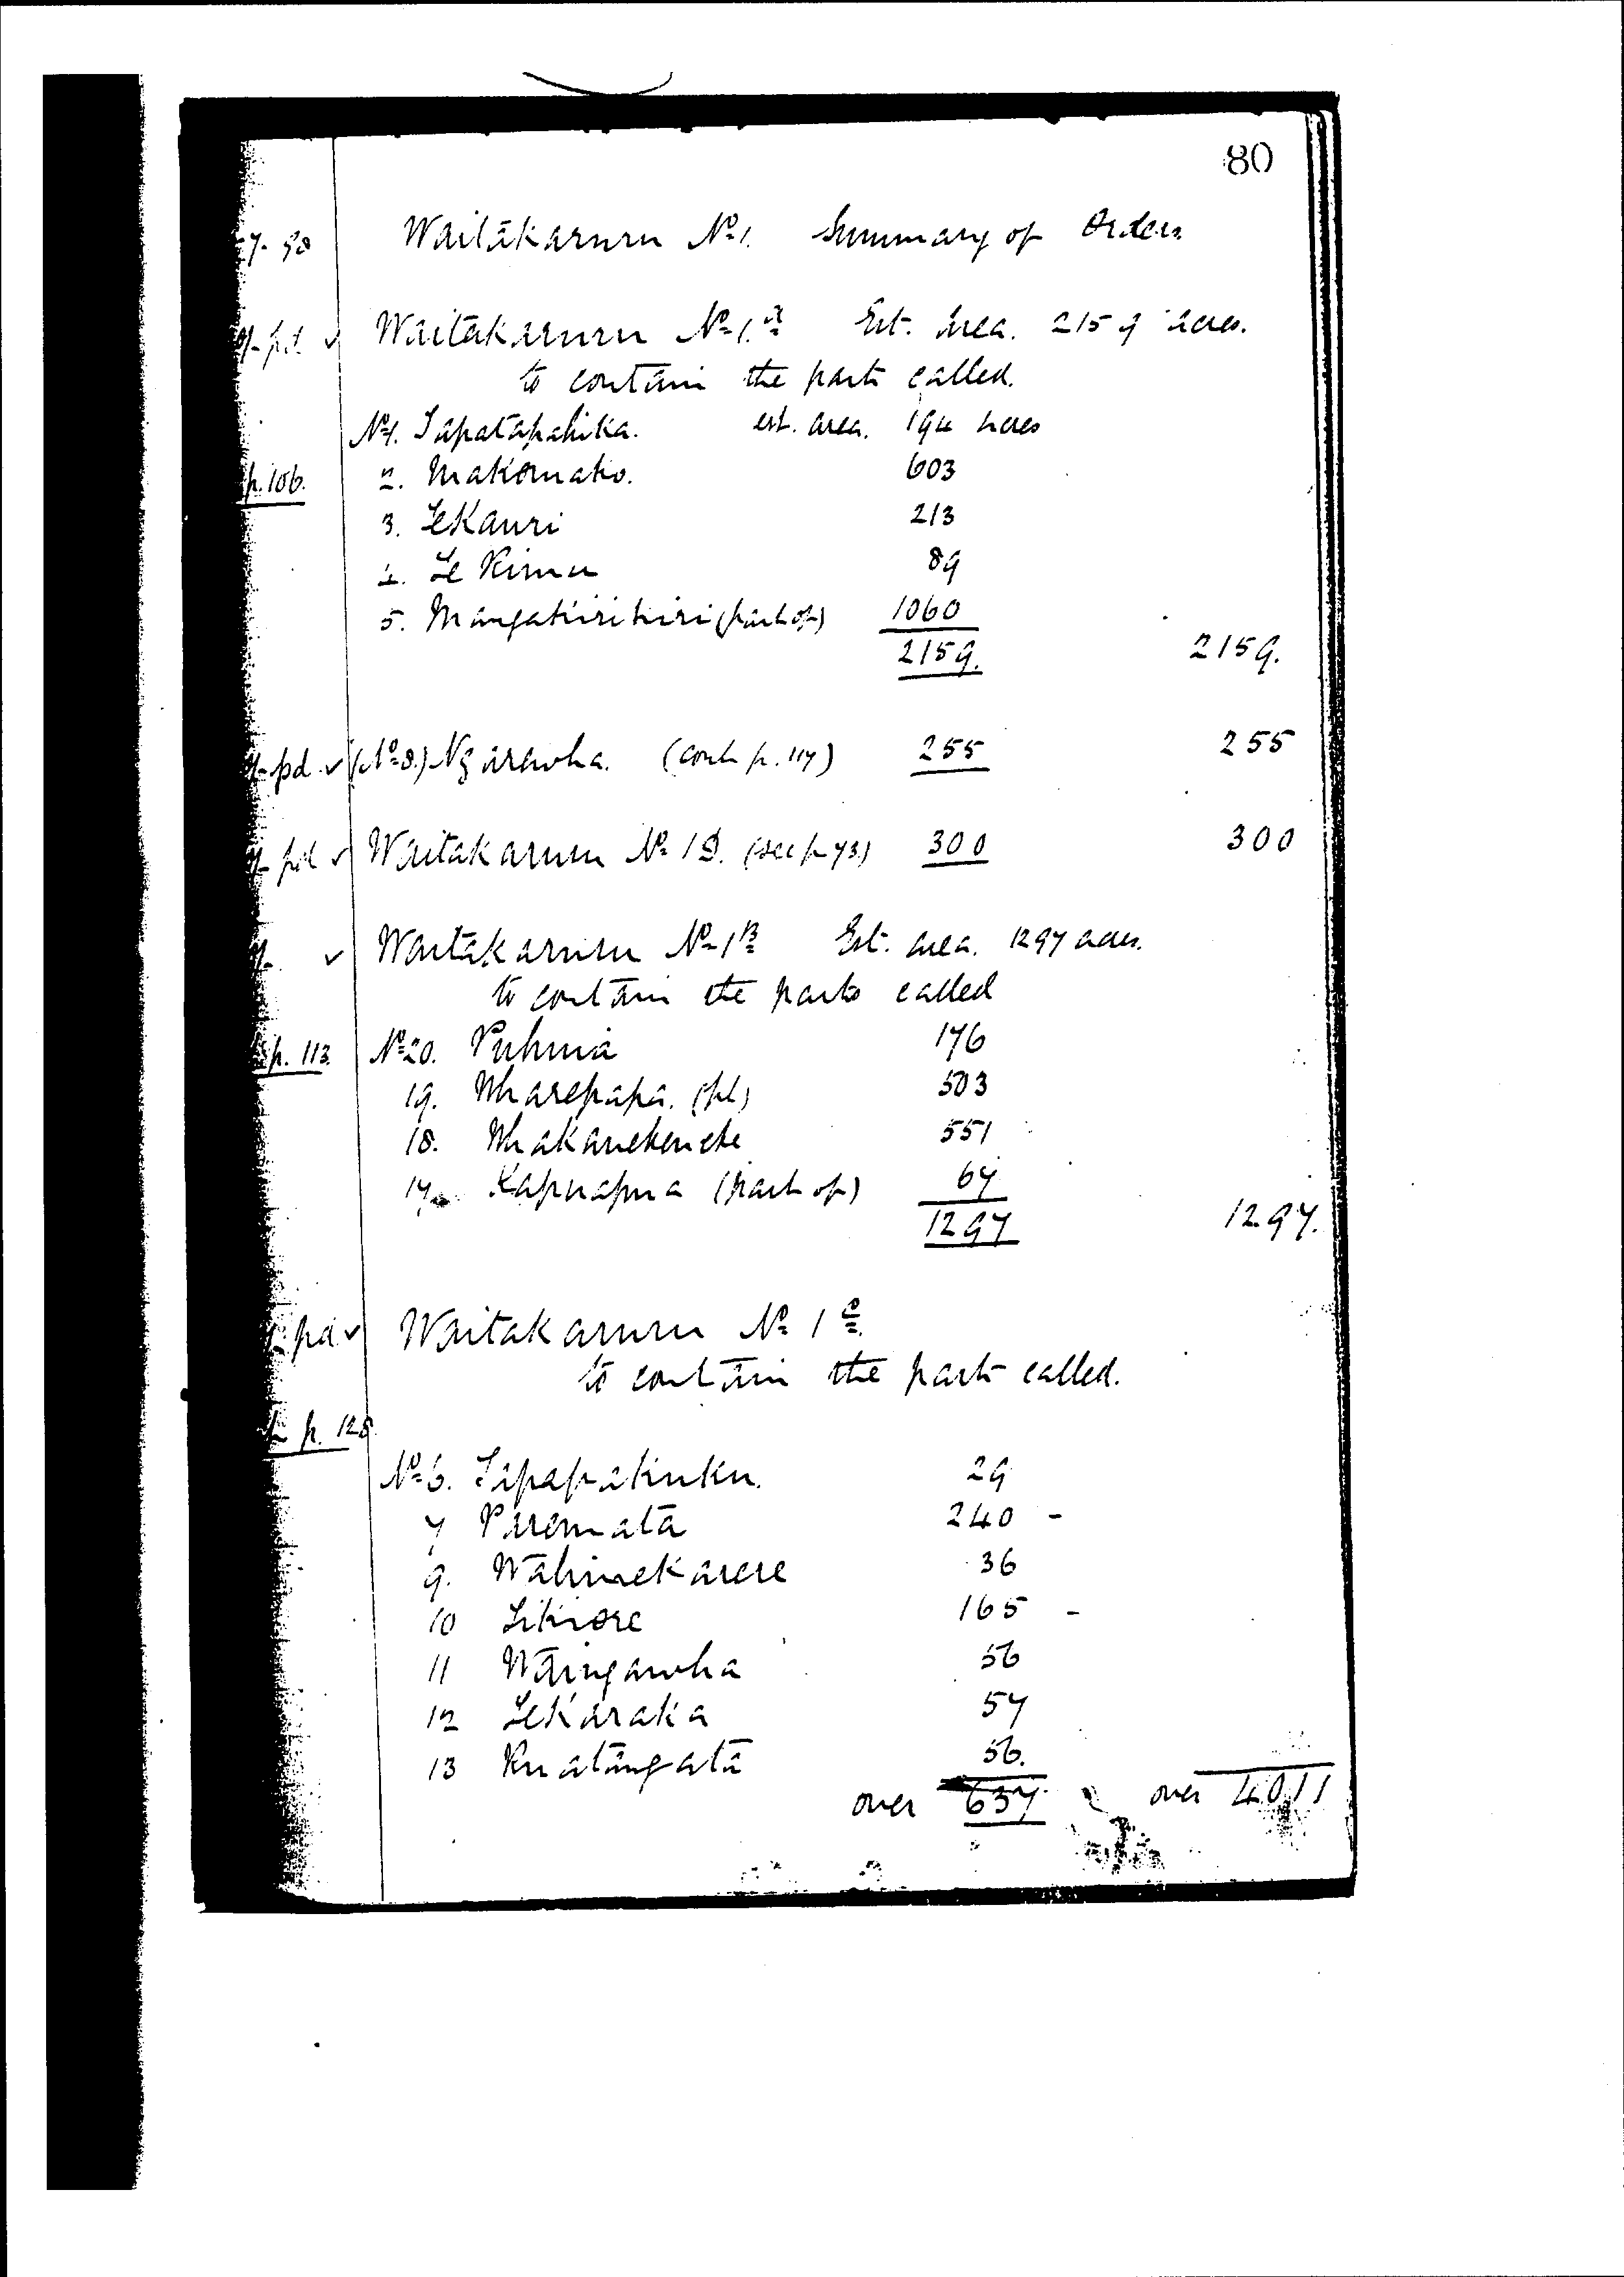 80
Waitakaruru No 1. Summary of Orders
pd. ✓ Waitakaruru No 1.A Est. area. 2159 acres.
to contain the parts called.
No 1. Tapatapahika. est. area. 194 acres
p. 106. 2. Makomako. 603
3. Te Kauri 213
4. Te Rimu 89
5. Mangatiritiri (part of) 1060
2159. 2159.
pd. ✓ (No 8.) Ngarawha. (contn p. 117) 255 255
pd ✓ Waitakaruru No 1D. (see p 73.) 300 300
✓ Waitakaruru No 1B Est. area. 1297 acres.
to contain the parts called
p. 113. No 20. Puhuia 176
19. Wharepapa. (pt) 503
18. Whakanekeneke 551
17. Kapuapua (part of) 67
1297 1297.
pd ✓ Waitakaruru No 1C.
to contain the parts called.
p. 128.
No 6. Tapapakuku. 29
7 Paremata 240 -
9. Wahinekarere 36
10 Tikiore 165 -
11 Waingawha 56
12 Te Karaka 57
13 Ruatangata 56.
over 637. over 4011